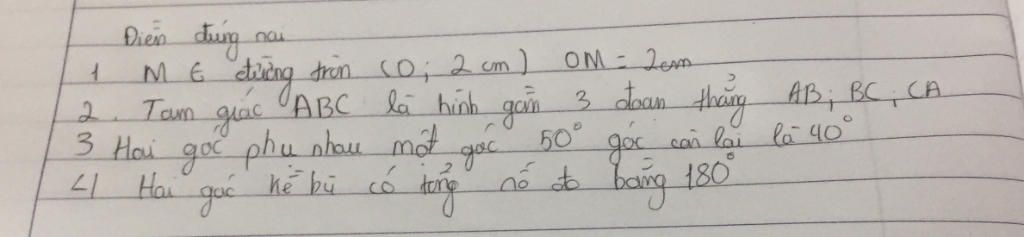 Điền đúng sai
1 M ∈ đường tròn (O; 2 cm) OM = 2cm
2. Tam giác ABC là hình gồm 3 đoan thẳng AB; BC; CA
3 Hai góc phụ nhau một góc 50° góc còn lại là 40°
4 Hai góc kề bù có tổng số đo bằng 180°